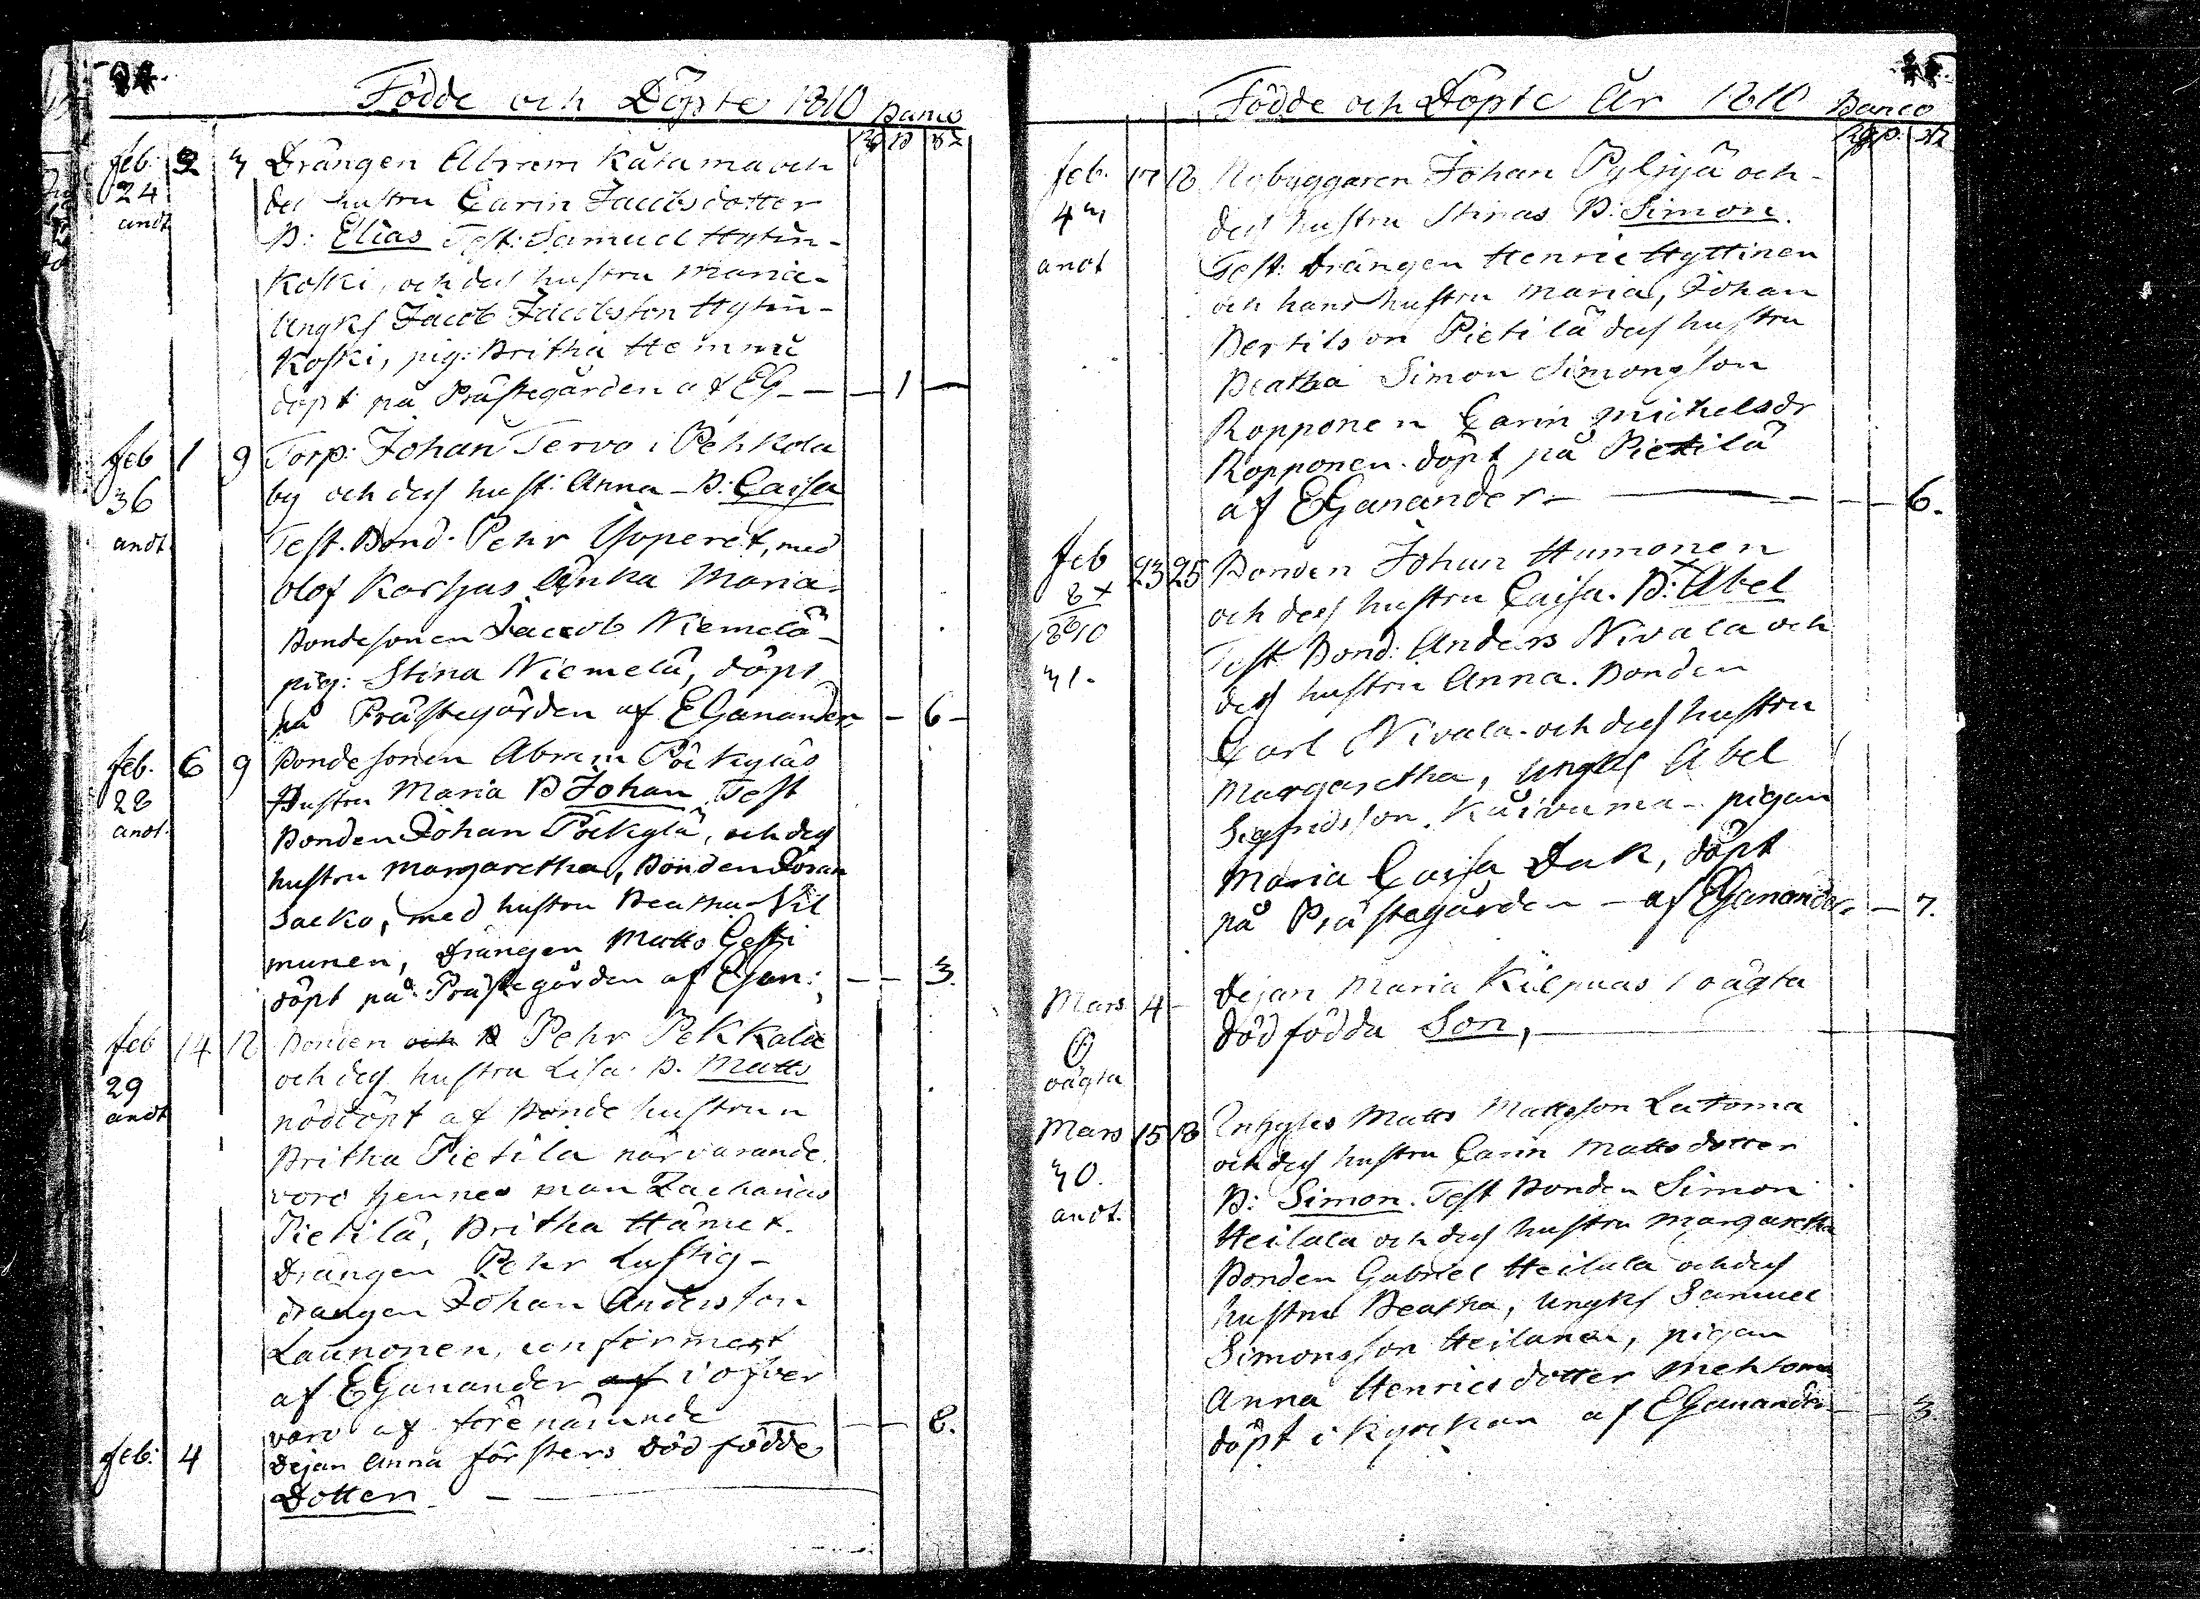 Födde och Döpte 1810 Banco
Feb. 2 3 Drängen Abram Katama och
24 des hustru Carin Jacobsdotter
andt. B: Elias Test: Samuel Hytin-
koski, och des hustru Maria-
Ungk[s] Jacob Jacobsson Hytin-
koski, pig: Britha Hemmi
döpt på Prästegården af EG. — — 1 —
Feb 1 9 Torp: Johan Tervo i Pehkola
36 by och des hust: Anna - B: Caisa
andt. Test. Bond. Pehr med
Olof Karhus änka Maria
Bondesonen Jacob Niemelä-
pig: Stina Niemelä, döpt
på Prästegården af EGanander — 6 —
Feb. 6 9 Bondesonen Abram Pöikyläs
28 Hustru Maria B Johan Test
andt. Bonden Johan Pöikylä, och des
hustru Margaretha, Bonden Göran
Saeko, med hustru Beatha Vil
munen, Drängen Matts
döpt på Prästegården af EGan: — — 3.
Feb 14 18 Bonden och B Pehr Pekkala
29 och des hustru Lisa. B. Matts
andt nöddöpt af bondehustrun
Britha Pietilä närvarande
voro hennes man Zacharias
Pietilä, Britha Hämet.
Drängen Pehr Lustig-
drängen Johan Andersson
Launonen, confirmert
af EGanander af i öfver
varo af förenämnde — — 8.
Feb: 4 Dejan Anna Försters död födde
Dotter. —
Födde och Döpte År 1810 Banco
Feb. 17 18 Nybyggaren Johan Pyljyä och-
43 des hustru Stinas B: Simon.
andt Test: drängen Henric Hyttinen
och hans hustru Maria, Johan
Bertilson Pietilä des hustru
Beatha Simon Simonsson
Ropponen Carin Michelsdr
Ropponen. döpt på Pietilä
af EGanander — — — 6.
Feb 23 25 Bonden Johan Humonen
8 + och des hustru Caisa. B: Abel
1810 Test Bond: Anders Nivala och
31. des hustru Anna. Bonden
Carl Nivala och des hustru
Margaretha, ungks Abel
Sigfridsson Kaivuma - pigan
Maria Caisa Dak, döpt
på Prästegården - af EGanander — 7.
Mars 4 - Dejan Maria Kilpuas / oägta
oägta död födda Son, —
Mars 15 18 Inhyses Matts Mattsson Leitoma
30. och des hustru Carin Mattsdotter
andt. B: Simon. Test Bonden Simon
Heilala och des hustru Margaretha
Bonden Gabriel Heilala och des
hustru Beatha, ungks Samuel
Simonsson Heilanen, pigan
Anna Henricsdotter
döpt i kyrckan af EGanander — — 3.